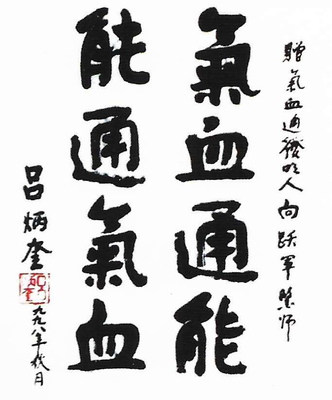 贈氣血通發明人向跃军醫师
氣血通能
能通氣血
吕炳奎
一九九八年秋月